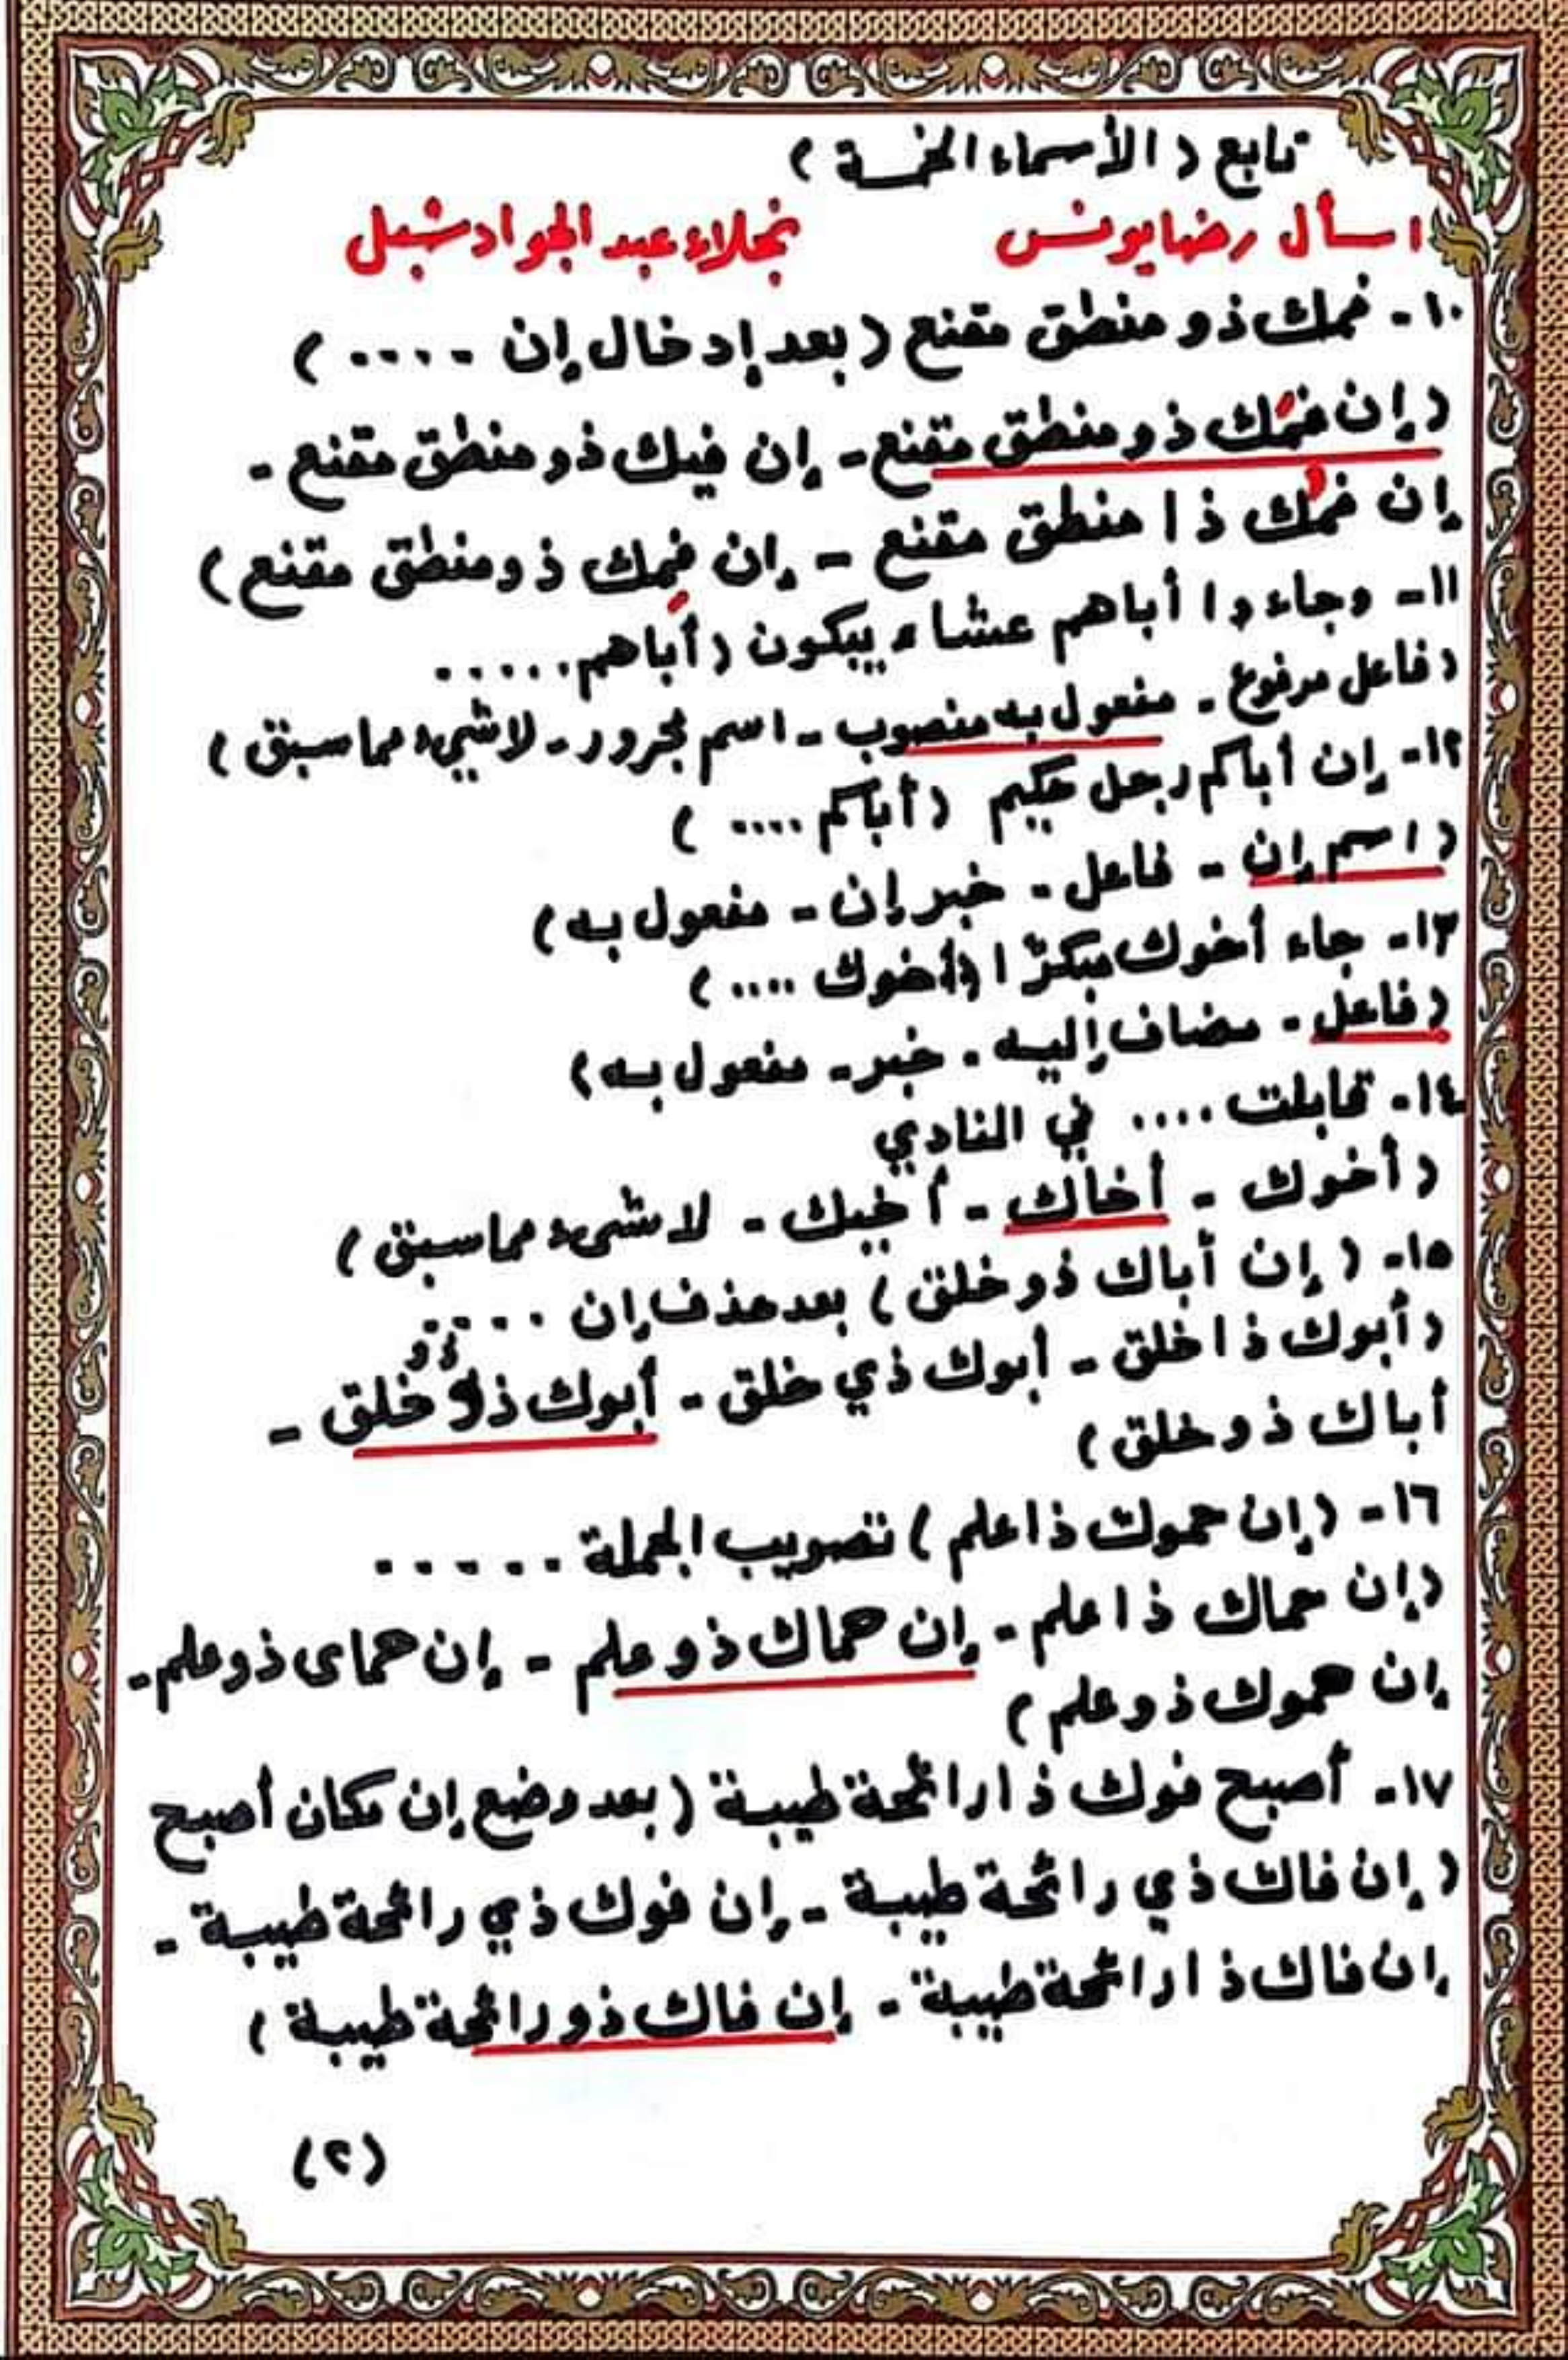 تابع (الأسماء الخمسة)
اسأل رضا يونس نجلاء عبد الجواد شبل
١٠- فمك ذو منطق مقنع (بعد إدخال إن ....)
(إن فمَك ذو منطق مقنع - إن فيك ذو منطق مقنع -
إن فمُك ذا منطق مقنع - إن فمِك ذو منطق مقنع)
١١- وجاءوا أباهم عشاء يبكون (أباهم .....
(فاعل مرفوع - مفعول به منصوب - اسم مجرور - لا شيء مما سبق)
١٢- إن أباكم رجل حكيم (أباكم ....)
(اسم إن - فاعل - خبر إن - مفعول به)
١٣- جاء أخوك مبكرًا (أخوك ....)
(فاعل - مضاف إليه - خبر - مفعول به)
١٤- قابلت .... في النادي
(أخوك - أخاك - أخيك - لا شيء مما سبق)
١٥- (إن أباك ذو خلق) بعد حذف إن .....
(أبوك ذا خلق - أبوك ذي خلق - أبوك ذو خلق -
أباك ذو خلق)
١٦- (إن حموك ذا علم) تصويب الجملة .....
(إن حماك ذا علم - إن حماك ذو علم - إن حماى ذو علم -
إن حموك ذو علم)
١٧- أصبح فوك ذا رائحة طيبة (بعد وضع إن مكان أصبح
(إن فاك ذي رائحة طيبة - إن فوك ذي رائحة طيبة -
إن فاك ذا رائحة طيبة - إن فاك ذو رائحة طيبة)
(٢)